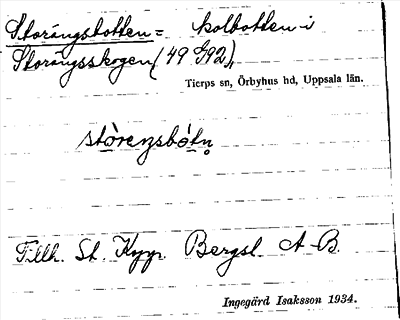 Storängsbotten = kolbotten i
Storängsskogen (49 G92),
Tierps sn, Örbyhus hd, Uppsala län.
stòreŋsbótn̥
Tillh. St. Kopp. Bergsl. A-B.
Ingegärd Isaksson 1934.